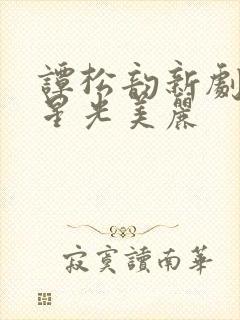 譚松韵新劇
星光美麗
寂寞讀南華